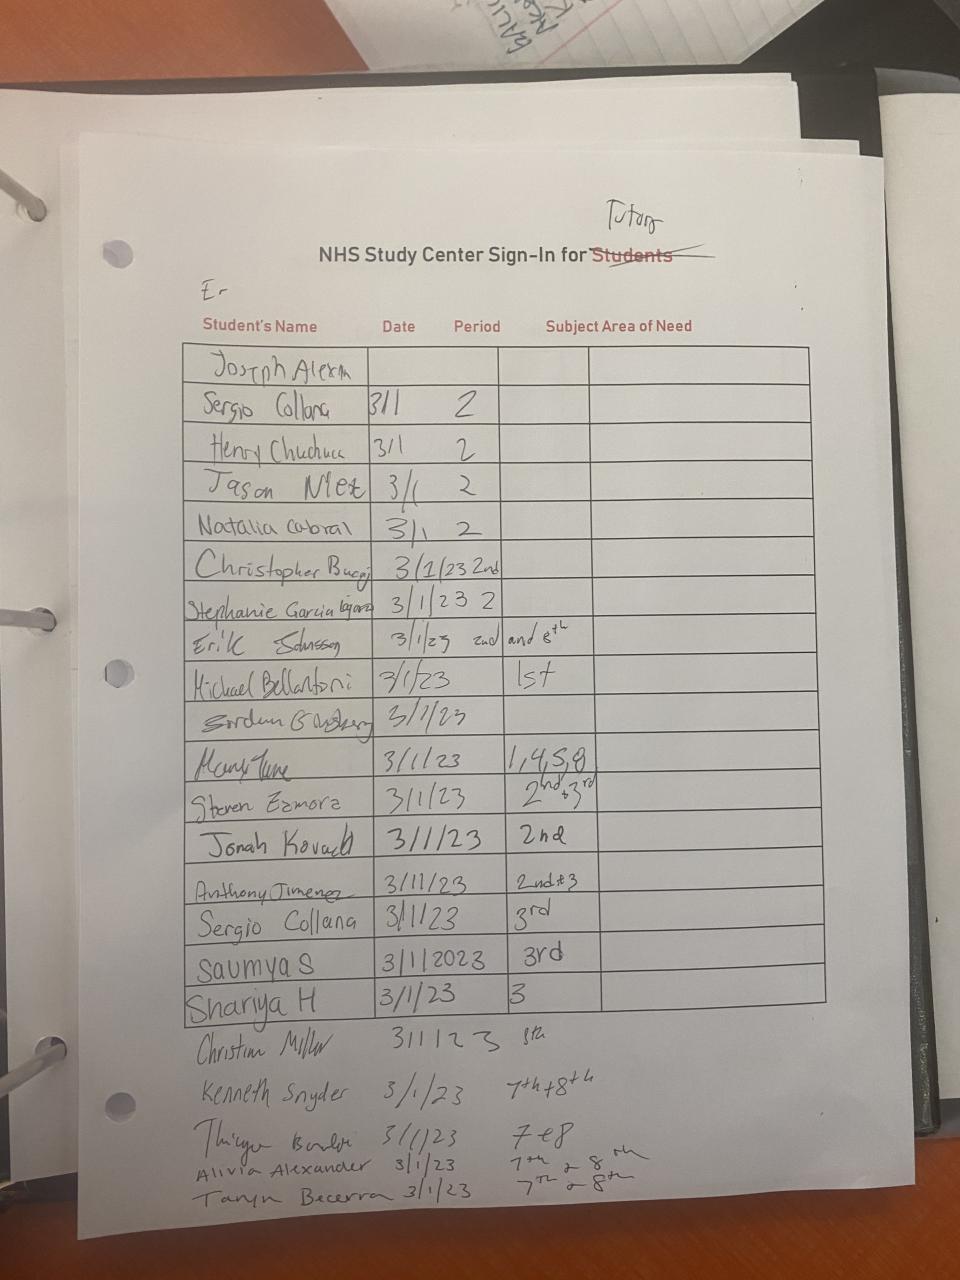 Tutors
NHS Study Center Sign-In for Students
Er
Student's Name Date Period Subject Area of Need
Joseph
Sergio Collana 3/1 2
Henry Chuchuca 3/1 2
Jason 3/1 2
Natalia Cabral 3/1 2
Christopher 3/1/23 2nd
Stephanie Garcia 3/1/23 2
Erik 3/1/23 2nd and 8th
Michael Bellantoni 3/1/23 1st
3/1/23
3/1/23 1,4,5,8
Steven Zamora 3/1/23 2nd & 3rd
Jonah Kovach 3/1/23 2nd
Anthony Jimenez 3/1/23 2nd & 3
Sergio Collana 3/1/23 3rd
Saumya S 3/1/2023 3rd
Shariya H 3/1/23 3
Miller 3/1/23 8th
Kenneth Snyder 3/1/23 7th + 8th
3/1/23 7 e 8
Alivia Alexander 3/1/23 7th & 8th
Taryn Becerra 3/1/23 7th & 8th